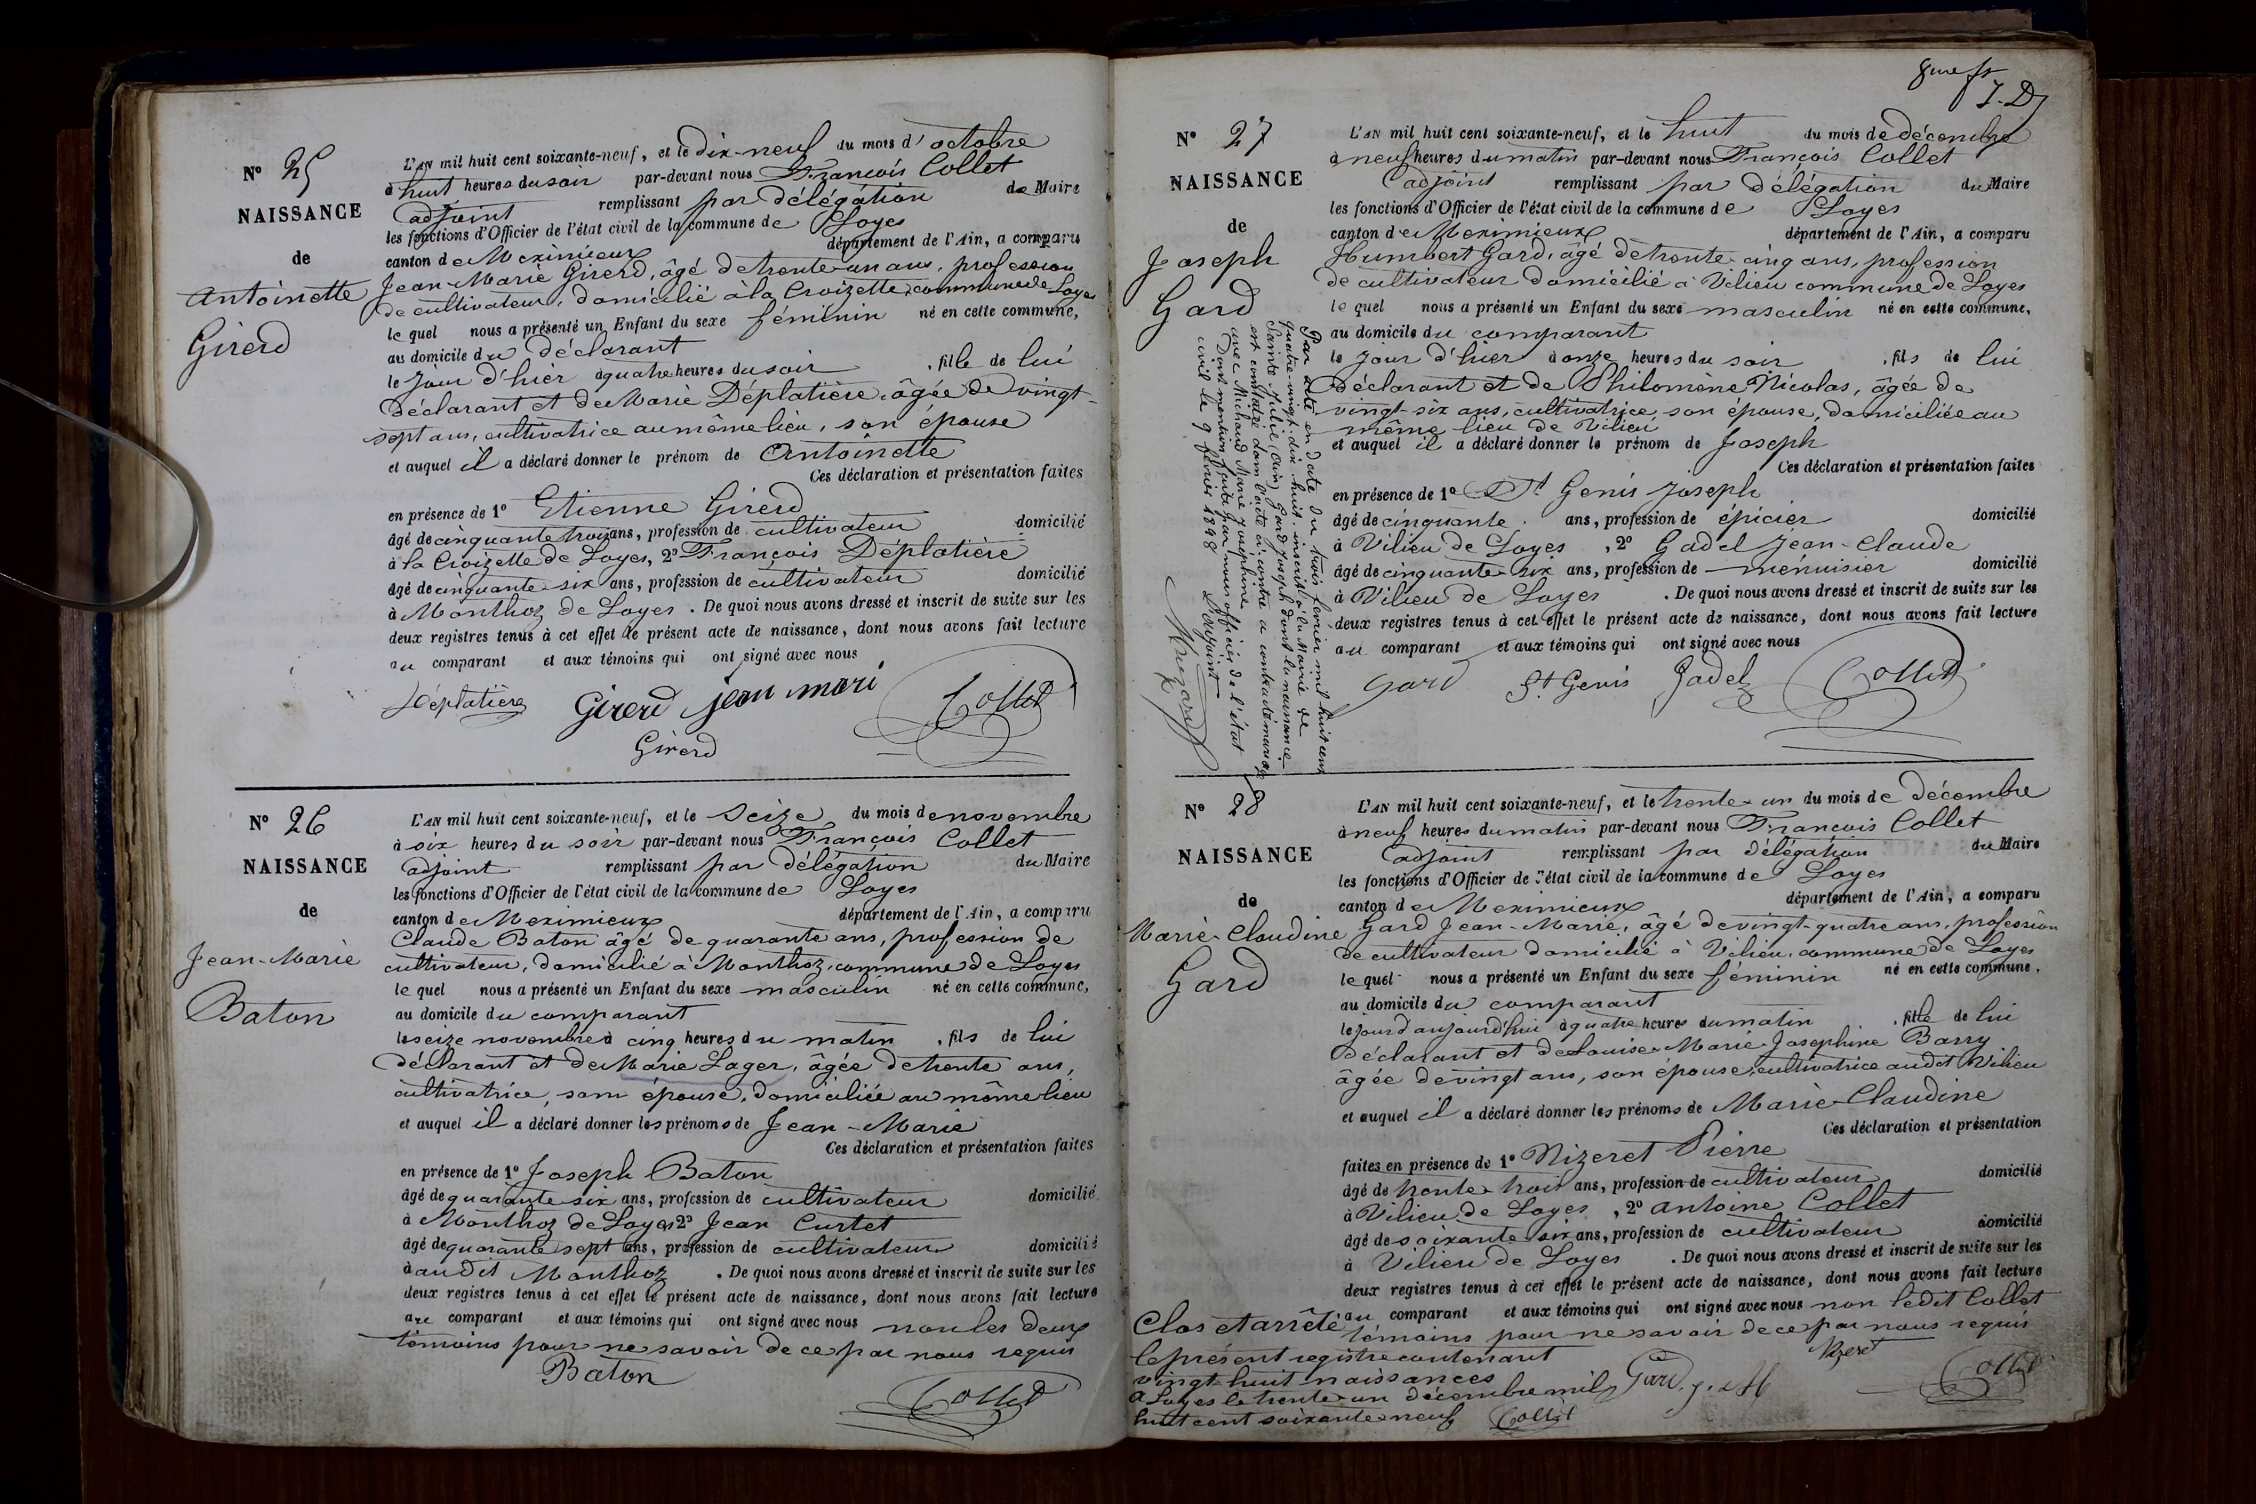 N° 25
NAISSANCE
de
Antoinette
Girerd
L'AN mil huit cent soixante-neuf, et le dix-neuf du mois d'octobre
à huit heures du soir par-devant nous François Collet
adjoint remplissant par délégation du Maire
les fonctions d'Officier de l'état civil de la commune de Loyes
canton de Meximieux département de l'Ain, a comparu
Jean-Marie Girerd, âgé de trente-un ans, profession
de cultivateur, domicilié à la Croizette, commune de Loyes
lequel nous a présenté un Enfant du sexe féminin né en cette commune,
au domicile du déclarant
le jour d'hier à quatre heures du soir, fille de lui
déclarant et de Marie Déplatière, âgée de vingt-
sept ans, cultivatrice au même lieu, son épouse
et auquel il a déclaré donner le prénom de Antoinette
Ces déclaration et présentation faites
en présence de 1° Etienne Girerd
âgé de cinquante trois ans, profession de cultivateur domicilié
à la Croizette de Loyes, 2° François Déplatière
âgé de cinquante-six ans, profession de cultivateur domicilié
à Monthoz de Loyes. De quoi nous avons dressé et inscrit de suite sur les
deux registres tenus à cet effet le présent acte de naissance, dont nous avons fait lecture
au comparant et aux témoins qui ont signé avec nous
Déplatière Girerd jean mari Collet
Girerd
N° 26
NAISSANCE
de
Jean-Marie
Baton
L'AN mil huit cent soixante-neuf, et le seize du mois de novembre
à six heures du soir par-devant nous François Collet
adjoint remplissant par délégation du Maire
les fonctions d'Officier de l'état civil de la commune de Loyes
canton de Meximieux département de l'Ain, a comparu
Claude Baton âgé de quarante ans, profession de
cultivateur, domicilié à Monthoz, commune de Loyes
lequel nous a présenté un Enfant du sexe masculin né en cette commune,
au domicile du comparant
le seize novembre à cinq heures du matin, fils de lui
déclarant et de Marie Lager, âgée de trente ans,
cultivatrice, son épouse, domiciliée au même lieu
et auquel il a déclaré donner les prénoms de Jean-Marie
Ces déclaration et présentation faites
en présence de 1° Joseph Baton
âgé de quarante six ans, profession de cultivateur domicilié
à Monthoz de Loyes 2° Jean Curtet
âgé de quarante sept ans, profession de cultivateur domicilié
à audit Monthoz. De quoi nous avons dressé et inscrit de suite sur les
deux registres tenus à cet effet le présent acte de naissance, dont nous avons fait lecture
au comparant et aux témoins qui ont signé avec nous non les deux
témoins pour ne savoir de ce par nous requis
Baton
Collet
8me ft
J. D
N° 27
NAISSANCE
de
Joseph
Gard
Par acte en date du trois février mil huit cent
quatre-vingt-dix-huit, inscrit à la Mairie de
Sainte Julie (Ain) Gard Joseph dont la naissance
est constatée dans l'acte ci-contre a contracté mariage
avec Michaud Marie Josephine
Dont mention faite par nous officier de l'état
civil le 9 février 1898 L'adjoint
L'AN mil huit cent soixante-neuf, et le huit du mois de décembre
à neuf heures du matin par-devant nous François Collet
adjoint remplissant par délégation du Maire
les fonctions d'Officier de l'état civil de la commune de Loyes
canton de Meximieux département de l'Ain, a comparu
Humbert Gard, âgé de trente-cinq ans, profession
de cultivateur domicilié à Vilieu commune de Loyes
lequel nous a présenté un Enfant du sexe masculin né en cette commune,
au domicile du comparant
le jour d'hier à onze heures du soir, fils de lui
déclarant et de Philomène Nicolas, âgée de
vingt-six ans, cultivatrice, son épouse, domiciliée au
même lieu de Vilieu
et auquel il a déclaré donner le prénom de Joseph
Ces déclaration et présentation faites
en présence de 1° St Genis Joseph
âgé de cinquante ans, profession de épicier domicilié
à Vilieu de Loyes, 2° Gadel Jean-Claude
âgé de cinquante-six ans, profession de menuisier domicilié
à Vilieu de Loyes. De quoi nous avons dressé et inscrit de suite sur les
deux registres tenus à cet effet le présent acte de naissance, dont nous avons fait lecture
au comparant et aux témoins qui ont signé avec nous
Gard St Genis Gadel Collet
N° 28
NAISSANCE
de
Marie-Claudine
Gard
L'AN mil huit cent soixante-neuf, et le trente-un du mois de décembre
à neuf heures du matin par-devant nous François Collet
adjoint remplissant par délégation du Maire
les fonctions d'Officier de l'état civil de la commune de Loyes
canton de Meximieux département de l'Ain, a comparu
Gard Jean-Marie, âgé de vingt-quatre ans, profession
de cultivateur domicilié à Vilieu, commune de Loyes
lequel nous a présenté un Enfant du sexe féminin né en cette commune,
au domicile du comparant
le jour d'aujourd'hui à quatre heures du matin, fille de lui
déclarant et de Louise-Marie-Josephine Barry
âgée de vingt ans, son épouse, cultivatrice audit Vilieu
et auquel il a déclaré donner les prénoms de Marie-Claudine
Ces déclaration et présentation
faites en présence de 1° Nizeret Pierre
âgé de trente-trois ans, profession de cultivateur domicilié
à Vilieu de Loyes, 2° Antoine Collet
âgé de soixante-six ans, profession de cultivateur domicilié
à Vilieu de Loyes. De quoi nous avons dressé et inscrit de suite sur les
deux registres tenus à cet effet le présent acte de naissance, dont nous avons fait lecture
au comparant et aux témoins qui ont signé avec nous non ledit Collet
témoins pour ne savoir de ce par nous requis
Nizeret
Gard. j. M Collet
Clos et arrêté
le présent registre contenant
vingt-huit naissances
A Loyes le trente-un décembre mil
huit cent soixante neuf Collet